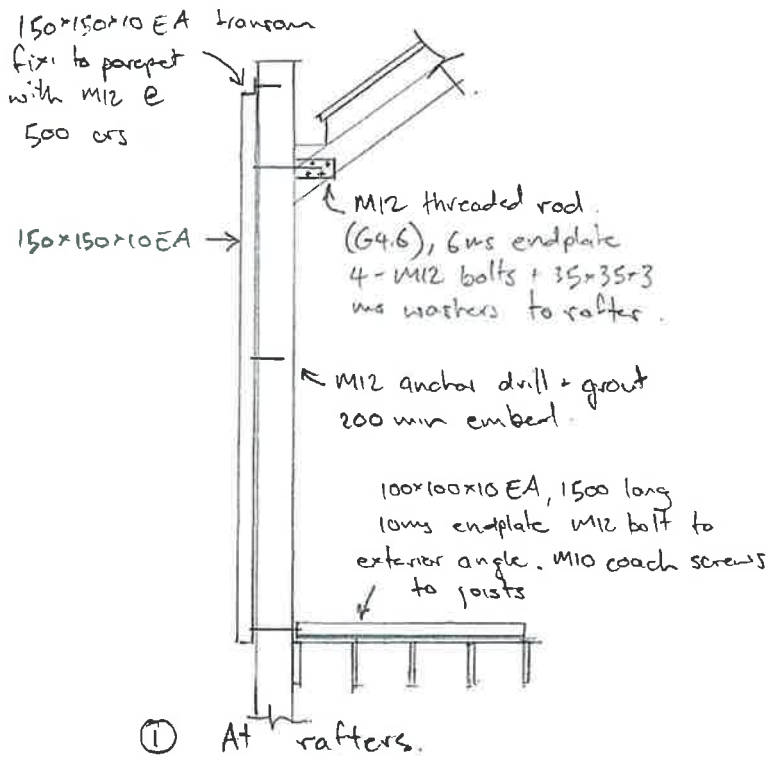 150×150×10 EA transom
fix to parapet
with M12 @
500 crs
150×150×10 EA
M12 threaded rod.
(G4.6), 6ms endplate
4 - M12 bolts + 35×35×3
ms washers to rafter.
M12 anchor drill + grout
200 min embed.
100×100×10 EA, 1500 long
10ms endplate M12 bolt to
exterior angle. M10 coach screws
to joists
① At rafters.